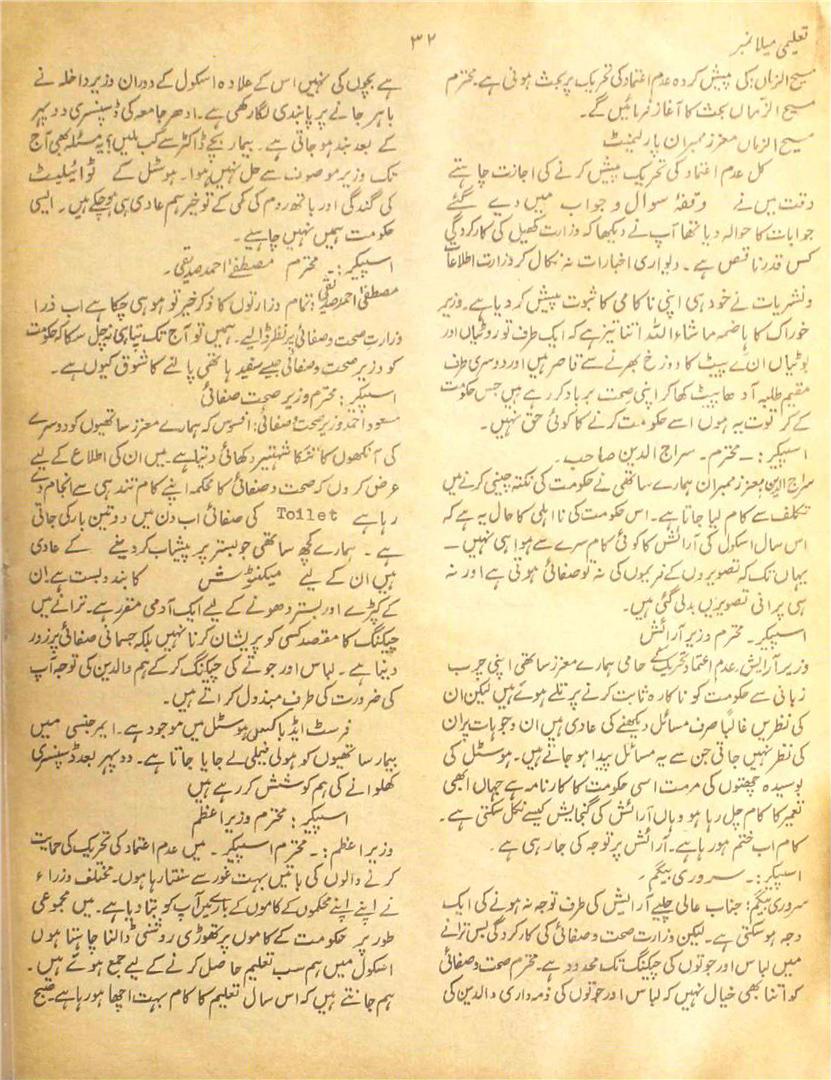 تعلیمی میلا نمبر
۳۲
مسیح الزماں: کی پیش کردہ عدم اعتماد کی تحریک پر بحث ہونی ہے۔ محترم
مسیح الزماں بحث کا آغاز فرمائیں گے۔
مسیح الزماں معزز ممبران پارلیمنٹ
کل عدم اعتماد کی تحریک پیش کرنے کی اجازت چاہتے
وقت میں نے وقفۂ سوال و جواب میں دیے گئے
جوابات کا حوالہ دیا تھا آپ نے دیکھا کہ وزارت کھیل کی کارکردگی
کس قدر ناقص ہے۔ دیواری اخبارات نہ نکال کر وزارت اطلاعات
ونشریات نے خود ہی اپنی ناکامی کا ثبوت پیش کر دیا ہے۔ وزیر
خوراک کا ہاضمہ ماشاء اللہ اتنا تیز ہے کہ ایک طرف تو روٹیاں اور
بوٹیاں ان کے پیٹ کا دوزخ بھرنے سے قاصر ہیں اور دوسری طرف
مقیم طلبہ آدھا پیٹ کھا کر اپنی صحت برباد کر رہے ہیں جس حکومت
کے کرتوت یہ ہوں اسے حکومت کرنے کا کوئی حق نہیں۔
اسپیکر:۔ محترم۔ سراج الدین صاحب۔
سراج الدین: معزز ممبران ہمارے ساتھی نے حکومت کی نکتہ چینی کرنے میں
تکلف سے کام لیا جاتا ہے۔ اس حکومت کی نااہلی کا حال یہ ہے کہ
اس سال اسکول کی آرائش کا کوئی کام سرے سے ہوا ہی نہیں۔
یہاں تک کہ تصویروں کے فریموں کی نہ تو صفائی ہوتی ہے اور نہ
ہی پرانی تصویریں بدلی گئی ہیں۔
اسپیکر۔ محترم وزیر آرائش
وزیر آرایش، عدم اعتماد تحریک کے حامی ہمارے معزز ساتھی اپنی چرب
زبانی سے حکومت کو ناکارہ ثابت کرنے پر تلے ہوئے ہیں لیکن ان
کی نظریں غالباً صرف مسائل دیکھنے کی عادی ہیں ان وجوہات پر ان
کی نظر نہیں جاتی جن سے یہ مسائل پیدا ہو جاتے ہیں۔ ہوسٹل کی
بوسیدہ چھتوں کی مرمت اسی حکومت کا کارنامہ ہے جہاں ابھی
تعمیر کا کام چل رہا ہو وہاں آرائش کی گنجایش کیسے نکل سکتی ہے۔
کام اب ختم ہو رہا ہے۔ آرائش پر توجہ کی جا رہی ہے۔
اسپیکر:۔ سروری بیگم۔
سروری بیگم: جناب عالی چلیے آرایش کی طرف توجہ نہ ہونے کی ایک
وجہ ہو سکتی ہے۔ لیکن وزارت صحت و صفائی کی کارکردگی بس ترانے
میں لباس اور جوتوں کی چیکنگ تک محدود ہے۔ محترم صحت و صفائی
کو اتنا بھی خیال نہیں کہ لباس اور جوتوں کی ذمہ داری والدین کی
ہے بچوں کی نہیں اس کے علاوہ اسکول کے دوران وزیر داخلہ نے
باہر جانے پر پابندی لگا رکھی ہے۔ ادھر جامعہ کی ڈسپنسری دوپہر
کے بعد بند ہو جاتی ہے۔ بیمار بچے ڈاکٹر سے کب ملیں؟ یہ مسئلہ بھی آج
تک وزیر موصوف سے حل نہیں ہوا۔ ہوسٹل کے ٹوائیلیٹ
کی گندگی اور باتھ روم کی کمی کے تو خیر ہم عادی ہی ہو چکے ہیں۔ ایسی
حکومت ہمیں نہیں چاہیے۔
اسپیکر:۔ محترم مصطفےٰ احمد صدیقی۔
مصطفےٰ احمد صدیقی: تمام وزارتوں کا ذکر خیر تو ہو ہی چکا ہے اب ذرا
وزارت صحت و صفائی پر نظر ڈالیے۔ ہمیں تو آج تک پتا ہی نہ چل سکا کہ حکومت
کو وزیر صحت و صفائی جیسے سفید ہاتھی پالنے کا شوق کیوں ہے۔
اسپیکر: محترم وزیر صحت صفائی
مسعود احمد وزیر صحت و صفائی: افسوس کہ ہمارے معزز ساتھیوں کو دوسرے
کی آنکھوں کا تنکا شہتیر دکھائی دیتا ہے۔ میں ان کی اطلاع کے لیے
عرض کر دوں کہ صحت و صفائی کا محکمہ اپنے کام تندہی سے انجام دے
رہا ہے Toilet کی صفائی اب دن میں دو تین بار کی جاتی
ہے۔ ہمارے کچھ ساتھی جو بستر پر پیشاب کر دینے کے عادی
ہیں ان کے لیے میکنٹوش کا بندوبست ہے۔ ان
کے کپڑے اور بستر دھونے کے لیے ایک آدمی مقرر ہے۔ ترانے میں
چیکنگ کا مقصد کسی کو پریشان کرنا نہیں بلکہ جسمانی صفائی پر زور
دینا ہے۔ لباس اور جوتے کی چیکنگ کر کے ہم والدین کی توجہ آپ
کی ضرورت کی طرف مبذول کراتے ہیں۔
فرسٹ ایڈ باکس ہوسٹل میں موجود ہے۔ ایمرجنسی میں
بیمار ساتھیوں کو ہولی فیملی لے جایا جاتا ہے۔ دوپہر بعد ڈسپنسری
کھلوانے کی ہم کوشش کر رہے ہیں
اسپیکر: محترم وزیر اعظم
وزیر اعظم:۔ محترم اسپیکر۔ میں عدم اعتماد کی تحریک کی حمایت
کرنے والوں کی باتیں بہت غور سے سنتا رہا ہوں۔ مختلف وزراء
نے اپنے اپنے محکموں کے کاموں کے بارے میں آپ کو بتا دیا ہے۔ میں مجموعی
طور پر حکومت کے کاموں پر تھوڑی روشنی ڈالنا چاہتا ہوں
اسکول میں ہم سب تعلیم حاصل کرنے کے لیے جمع ہوئے ہیں۔
ہم جانتے ہیں کہ اس سال تعلیم کا کام بہت اچھا ہو رہا ہے۔ صبح